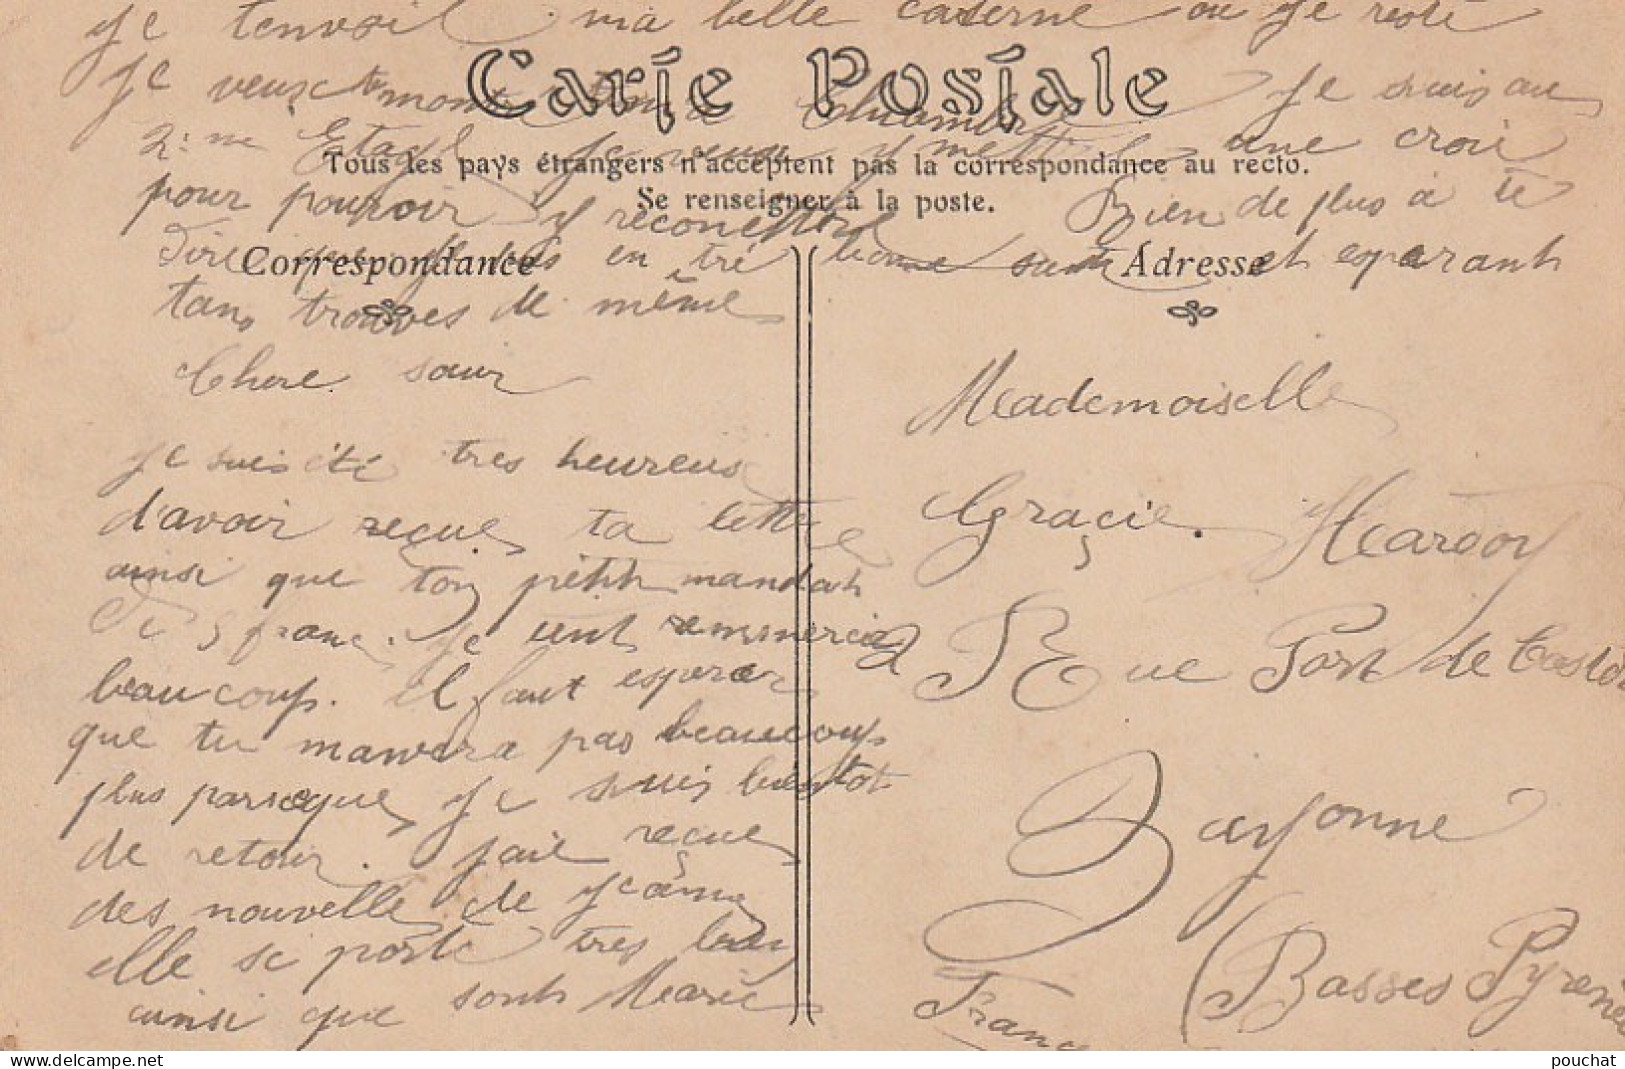 je tenvoil ma belle caserne ou je reste
Carte Postale
je veux te montre ma chambre je suis au
2: me Etage je veux y mettre une croi
Tous les pays étrangers n'acceptent pas la correspondance au recto.
Se renseigner à la poste.
pour pouvoir y reconettre Bien de plus à te
Dire que je suis en tré bonne santé et esperant
Correspondance
Adresse
tan trouves de même
Chere sœur
je suis été tres heureus
d'avoir reçue ta lettre
ainsi que ton pétit mandat
De 5 franc. je tent remmercie
beaucoup. il faut esperer
que tu manvera pas beaucoup
plus parceque je suis bientot
de retour. jait reçue
des nouvelle de
elle se porte tres bien
ainsi que sont Marie
Mademoiselle
Graçie. Hardoy
Rue Port de Castets
Bayonne
(Basses Pyrené
France
pouchat